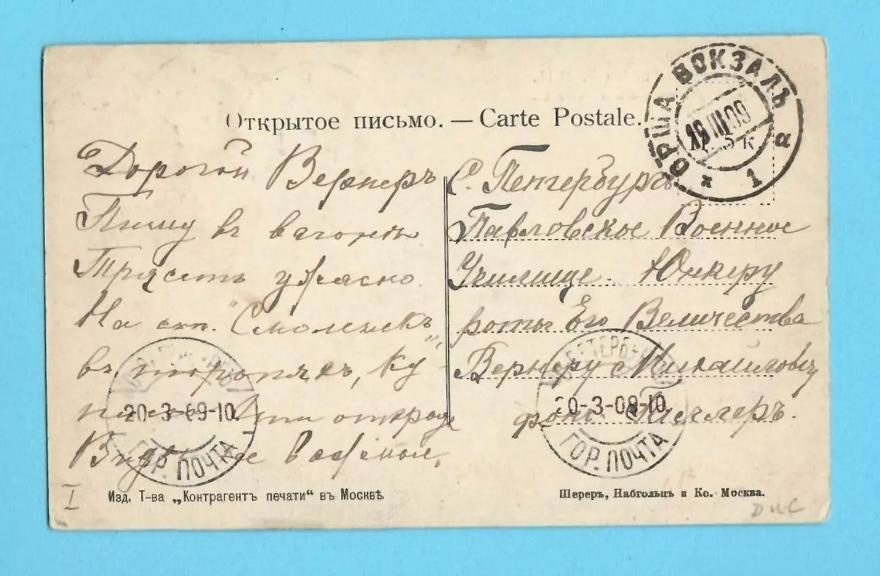 Открытое письмо. — Carte Postale.
ОРША ВОКЗАЛЪ
19 III 09
1 а
Дорогой Вернеръ
Пишу въ вагонѣ
Трясетъ ужасно.
На ст. "Смоленскъ"
въ торопяхъ, ку-
открод
Видъ не
С. Петербургъ
Павловское Военное
Училище. Юнкеру
роты Его Величества
Вернеру Михайловичу
фонъ
20-3-09-10
ГОР. ПОЧТА
С.ПЕТЕРБУРГЪ
20-3-09-10
ГОР. ПОЧТА
Изд. Т-ва „Контрагентъ печати“ въ Москвѣ.
Шереръ, Набгольцъ и Ко. Москва.
I